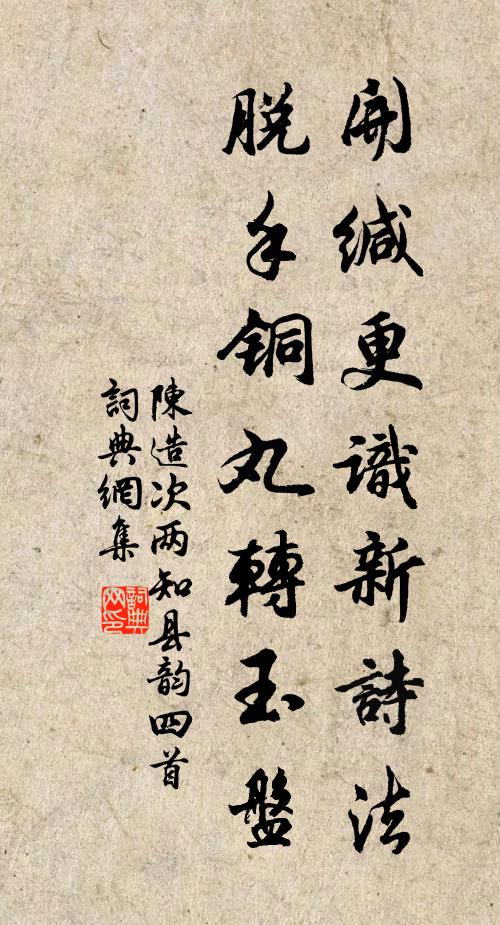 開缄更識新詩法
脱手铜丸轉玉盤
陳造次两知县韵四首
詞典網集
詞典网印